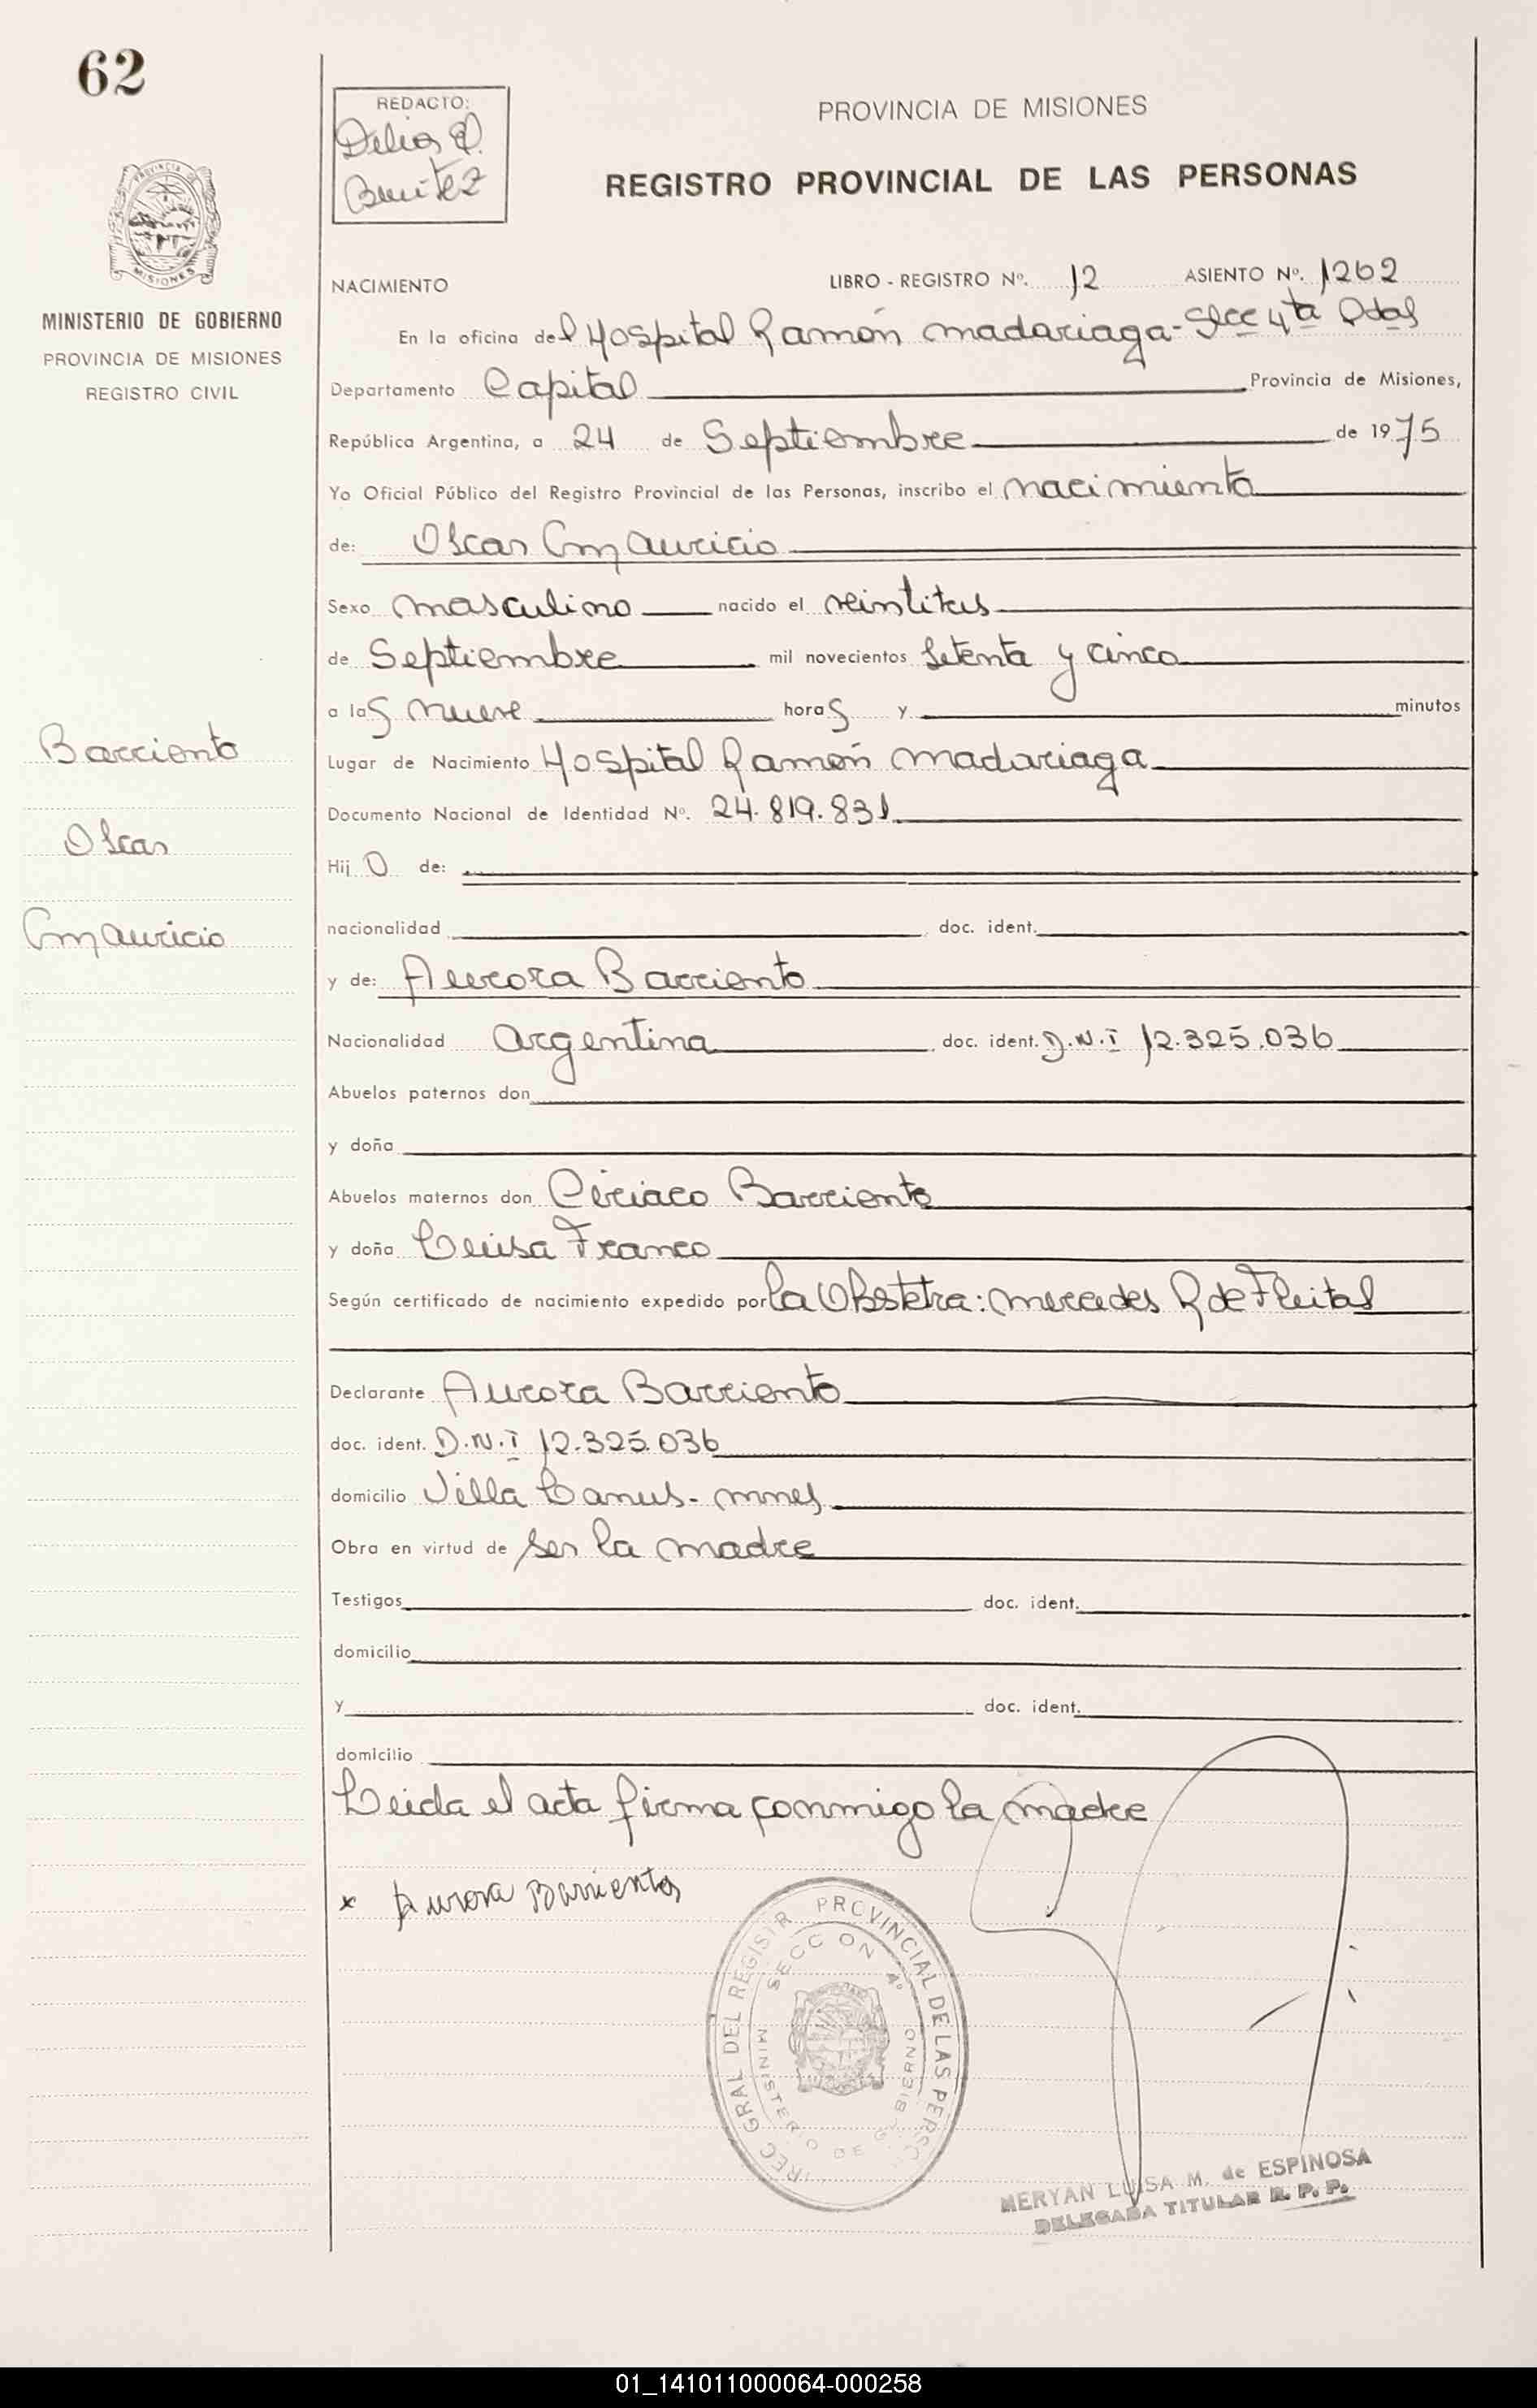 62
REDACTO:
Delia
Benitez
PROVINCIA DE MISIONES
REGISTRO PROVINCIAL DE LAS PERSONAS
MISIONES
MINISTERIO DE GOBIERNO
PROVINCIA DE MISIONES
REGISTRO CIVIL
NACIMIENTO LIBRO - REGISTRO Nº. 12 ASIENTO Nº. 1262
En la oficina del Hospital Ramón Madariaga - Secc 4ta Pdas
Departamento Capital Provincia de Misiones,
República Argentina, a 24 de Septiembre de 1975
Yo Oficial Público del Registro Provincial de las Personas, inscribo el nacimiento
de: Oscar Mauricio
Sexo masculino nacido el veintitres
de Septiembre mil novecientos setenta y cinco
a las nueve horas y minutos
Barriento
Lugar de Nacimiento Hospital Ramón Madariaga
Documento Nacional de Identidad Nº. 24.819.831
Oscar
Hijo de:
Mauricio
nacionalidad doc. ident.
y de: Aurora Barriento
Nacionalidad Argentina doc. ident. D.N.I 12.325.036
Abuelos paternos don
y doña
Abuelos maternos don Ciriaco Barriento
y doña Luisa Franco
Según certificado de nacimiento expedido por la Obstetra: Mercedes R de Fleitas
Declarante Aurora Barriento
doc. ident. D.N.I 12.325.036
domicilio Villa Lanus - Mnes
Obra en virtud de ser la madre
Testigos doc. ident.
domicilio
y doc. ident.
domicilio
Leida el acta firma conmigo la madre
x Aurora Barrientos
DIREC GRAL DEL REGISTR PROVINCIAL DE LAS PERSO
SECCION 4º
MINISTERIO DE GOBIERNO
MERYAN LUISA M. de ESPINOSA
DELEGADA TITULAR R. P. P.
01_141011000064-000258